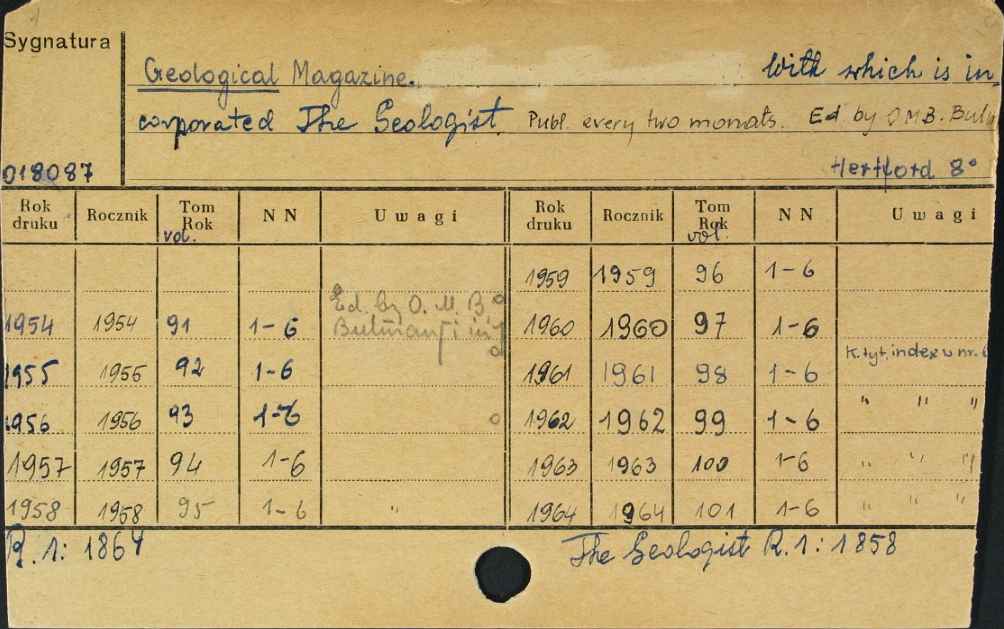 Sygnatura
Geological Magazine. With which is in
corporated The Geologist Publ. every two monats. Ed. by O.M.B. Bul
018087 Hertford 8°
Rok druku Rocznik Tom Rok vol. N N Uwagi Rok druku Rocznik Tom Rok vol. N N Uwagi
1959 1959 96 1-6
1954 1954 91 1-6 Ed. by O. M. B. Bulman 1960 1960 97 1-6
1955 1955 92 1-6 1961 1961 98 1-6 K. tyt. index w nr. 6
1956 1956 93 1-6 1962 1962 99 1-6 " " "
1957 1957 94 1-6 1963 1963 100 1-6 " " "
1958 1958 95 1-6 " 1964 1964 101 1-6 " " "
R. 1: 1864 The Geologist R. 1: 1858